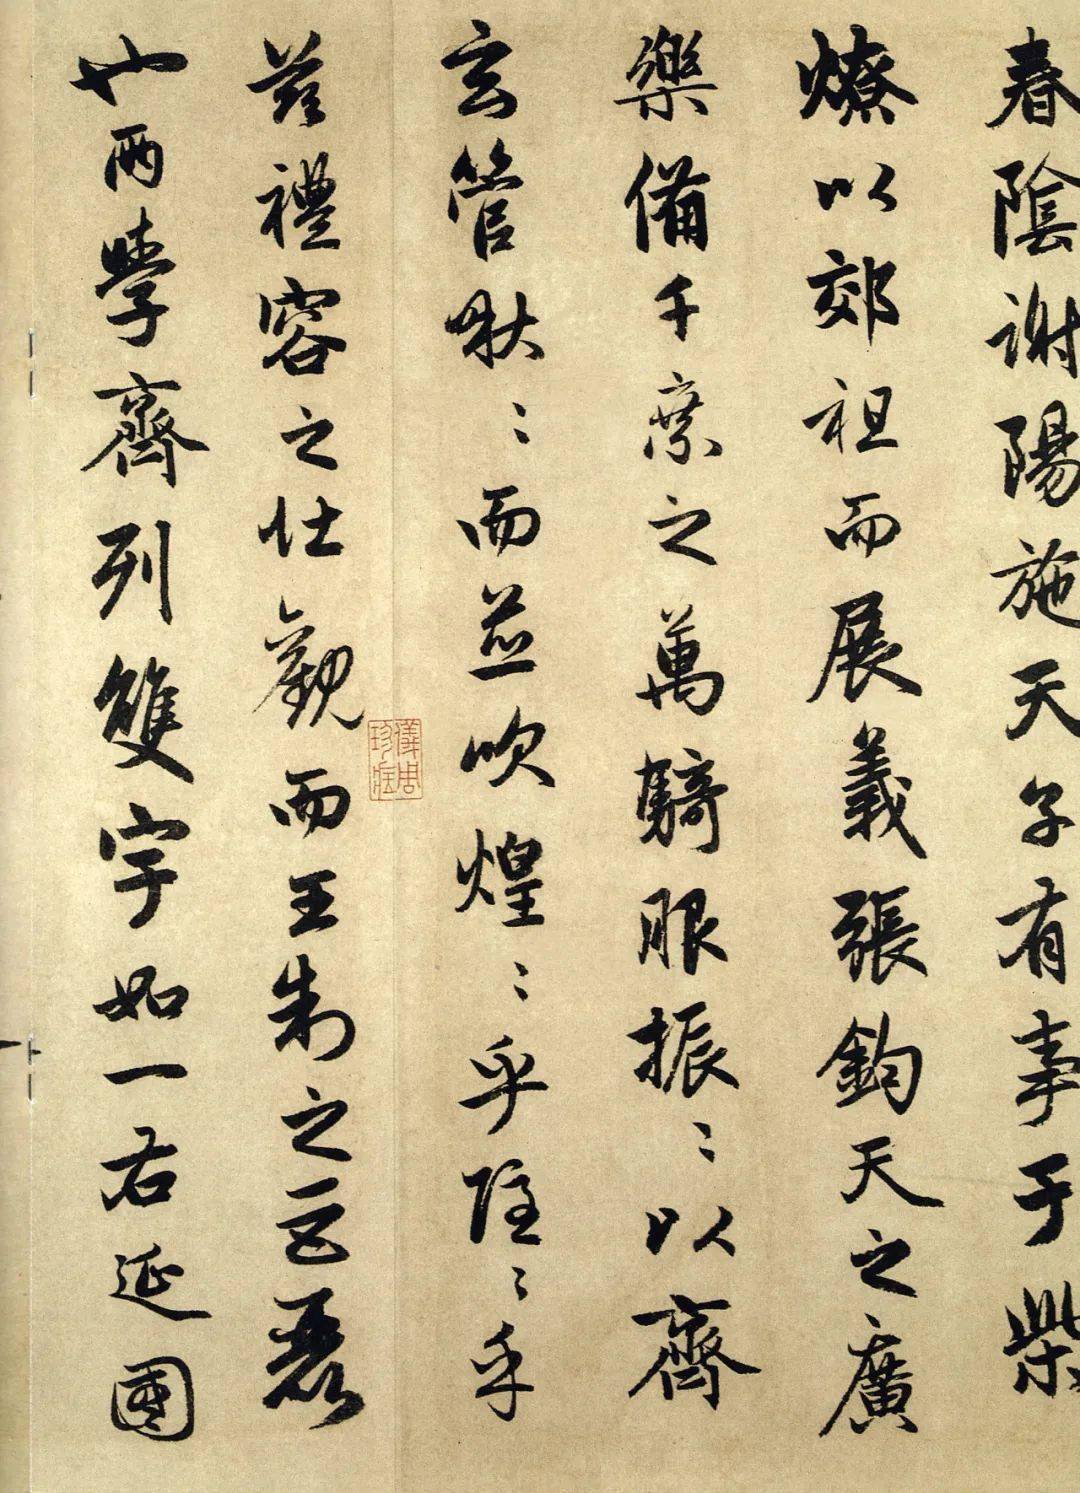 春陰謝陽施天子有事于柴
燎以郊祖而展義張鈞天之廣
樂備千乘之萬騎服振〻以齊
玄管啾〻而並吹煌〻乎隱〻乎
茲禮容之壯觀而王制之巨麗
也兩學齊列雙宇如一右延國
儀周珍藏